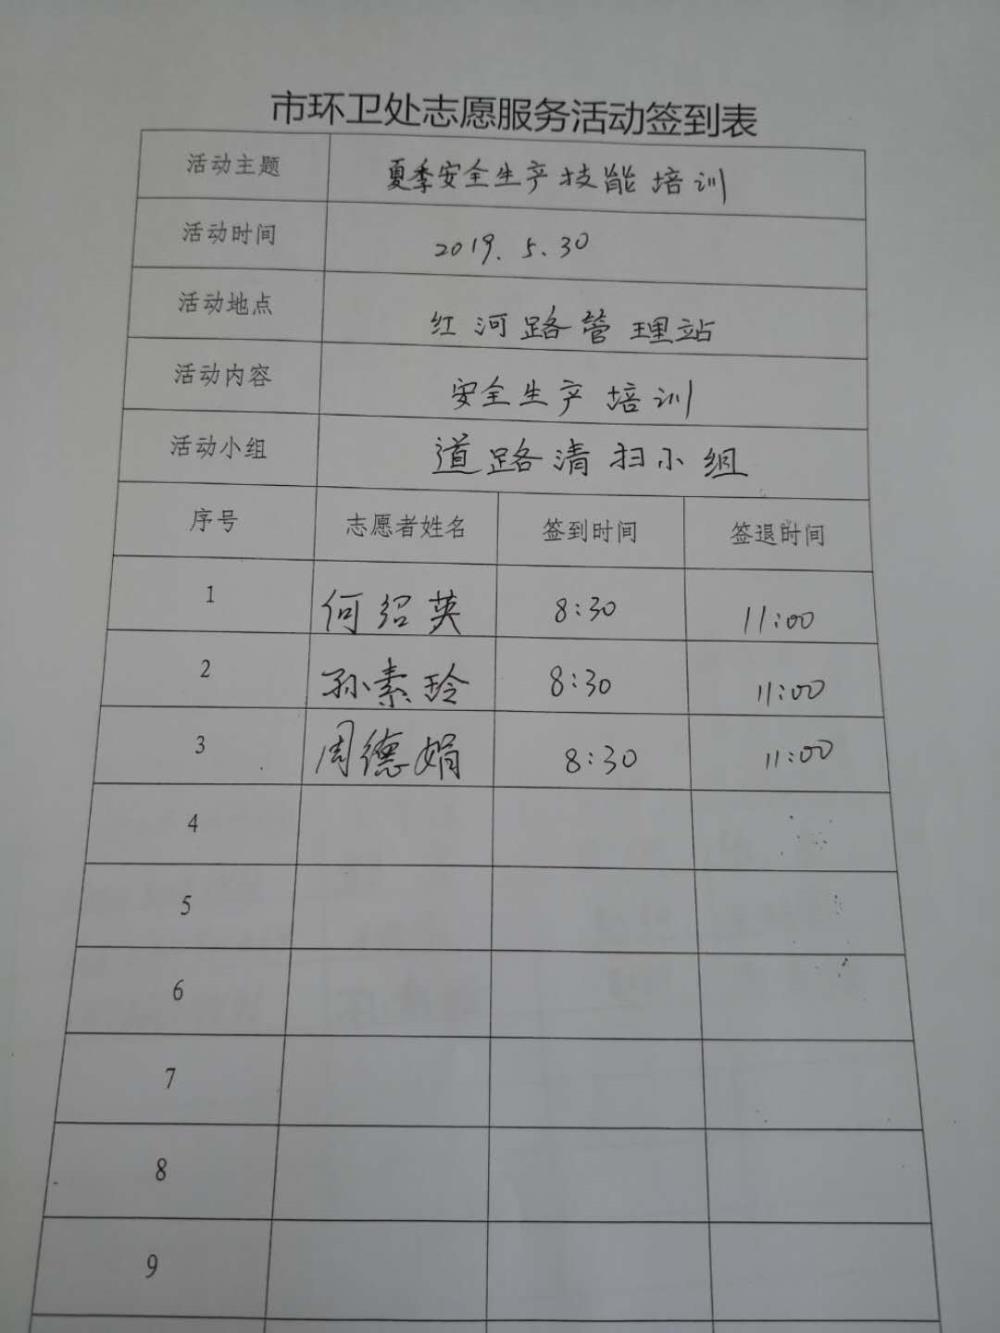 市环卫处志愿服务活动签到表
活动主题 夏季安全生产技能培训
活动时间 2019.5.30
活动地点 红河路管理站
活动内容 安全生产培训
活动小组 道路清扫小组
序号 志愿者姓名 签到时间 签退时间
1 何绍英 8:30 11:00
2 孙素玲 8:30 11:00
3 周德娟 8:30 11:00
4
5
6
7
8
9